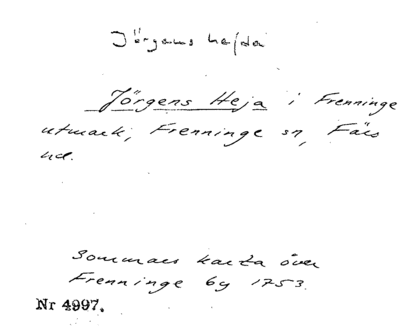 Jörgens hejda
Jörgens Heja i Frenninge
utmark, Frenninge sn, Färs
hd.
Sommars karta över
Frenninge by 1753.
Nr 4997.